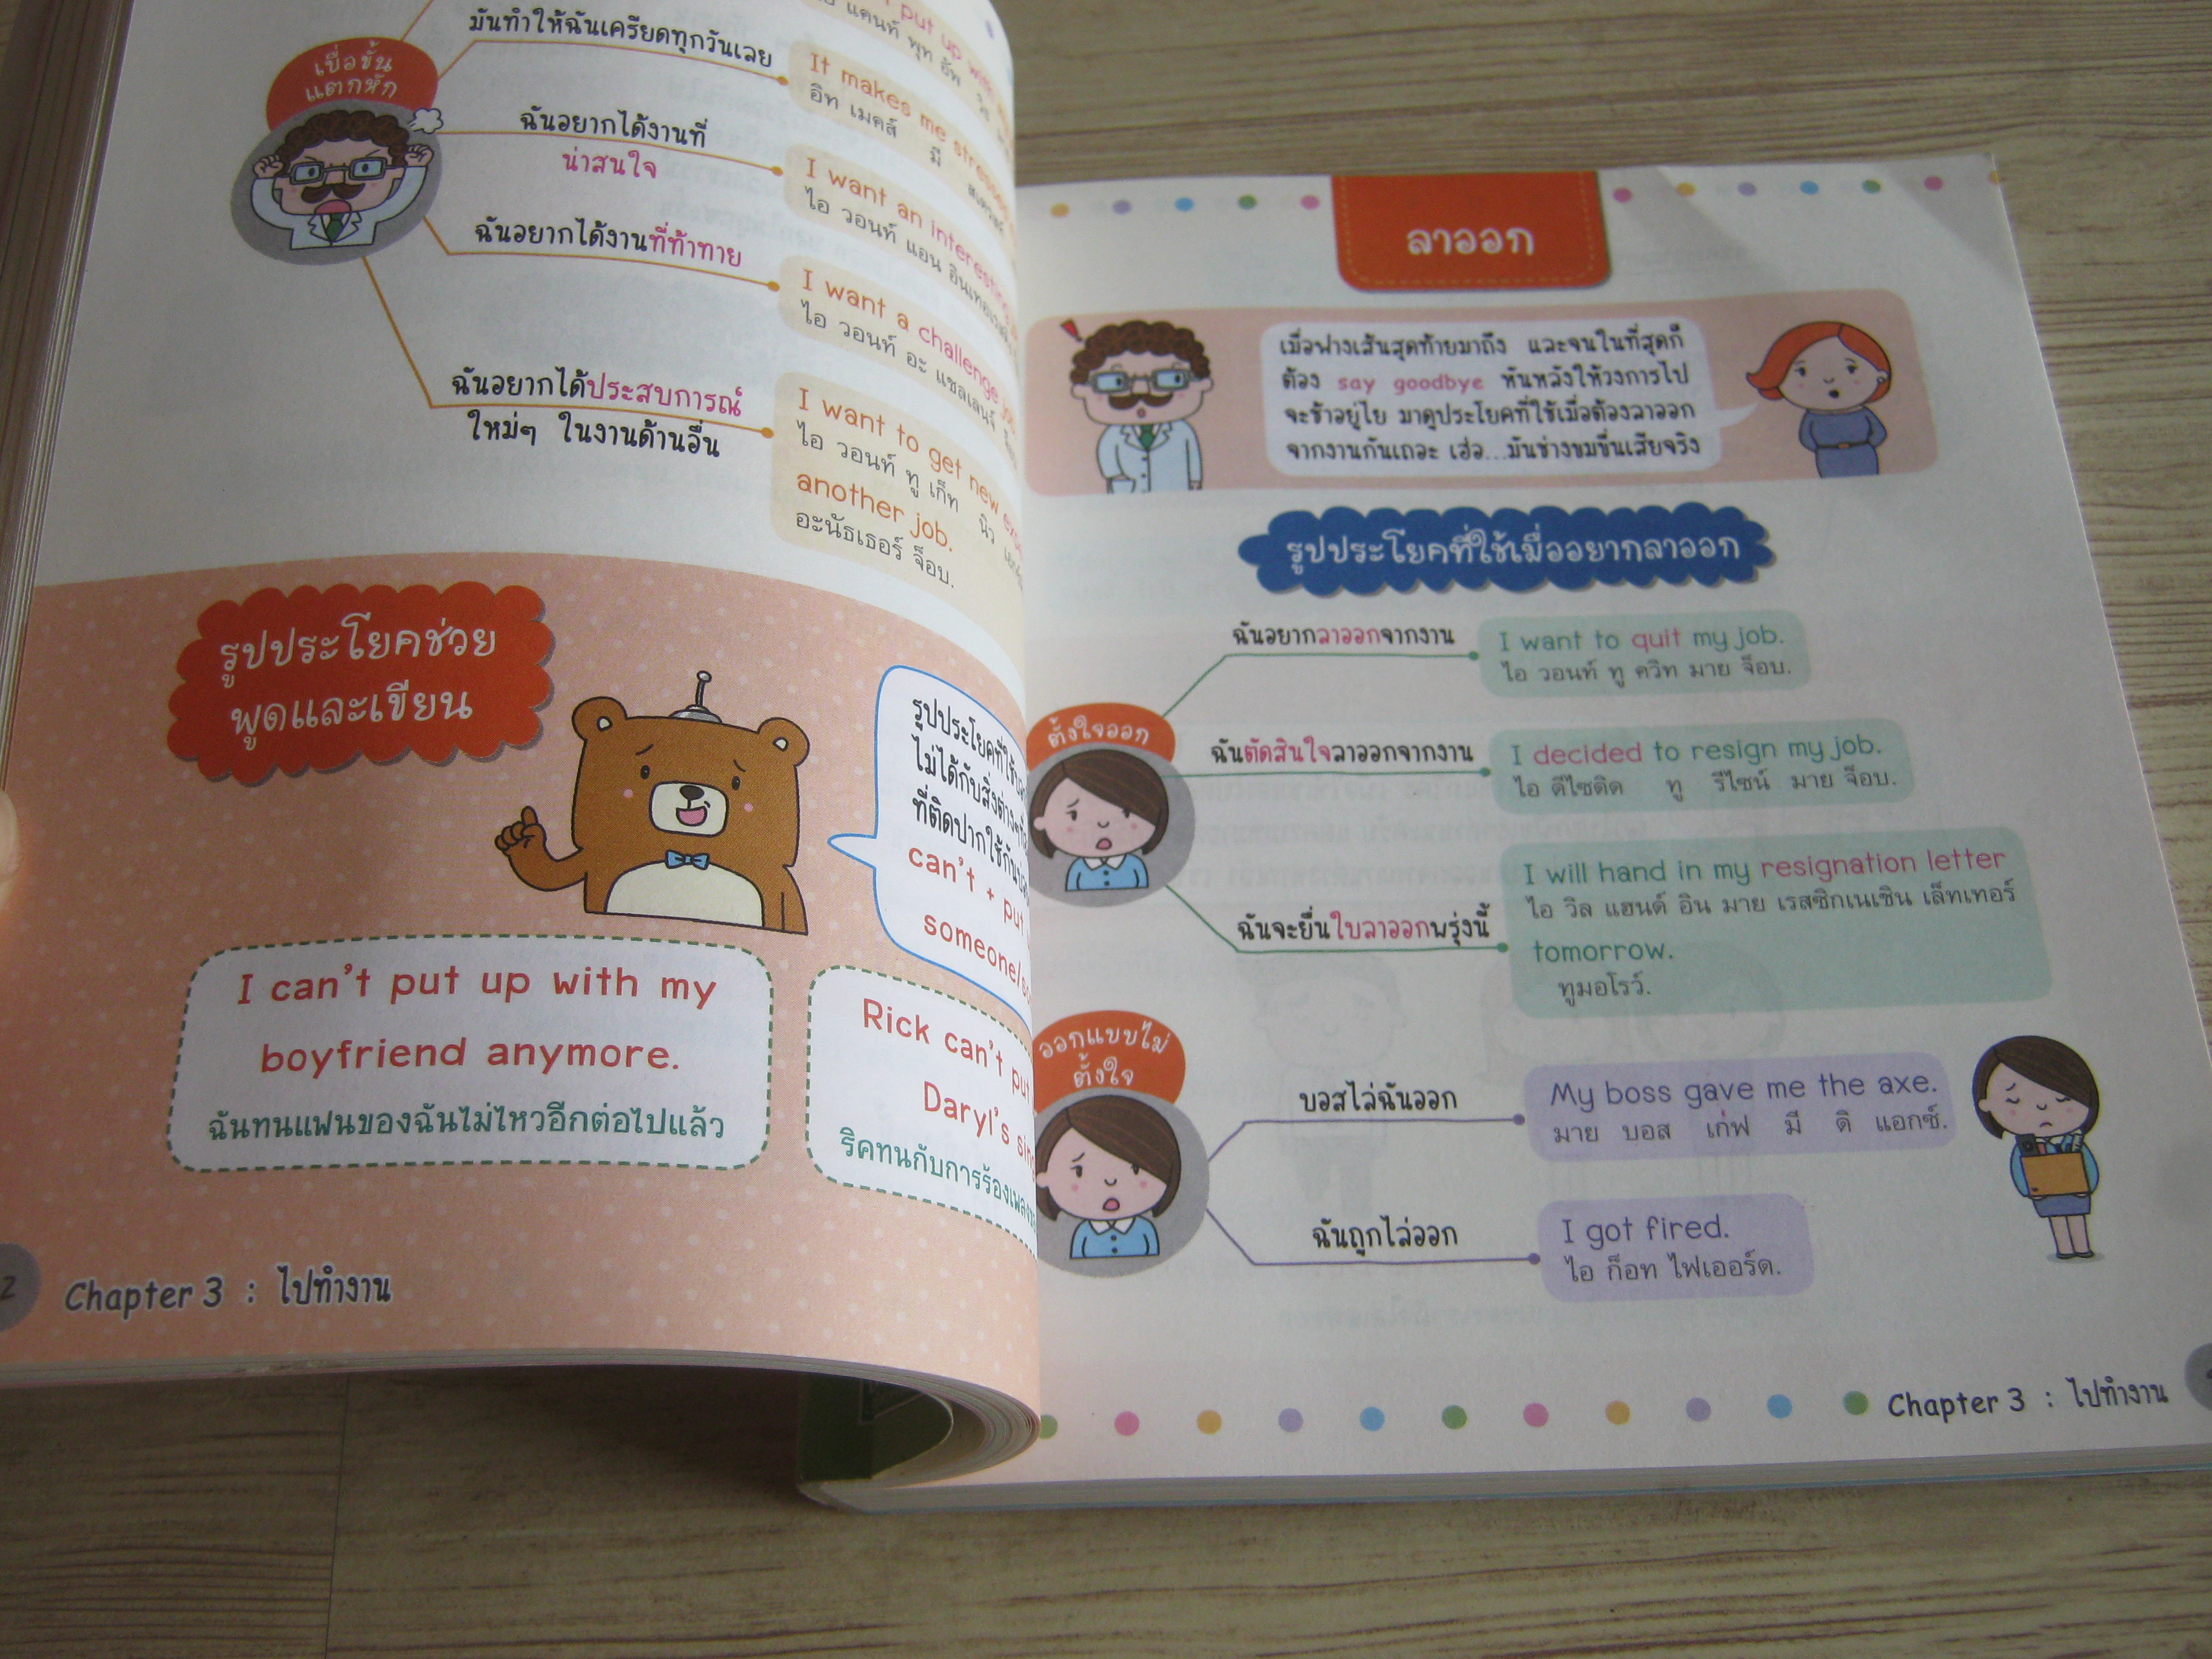 put up with
แคนท์ พุท อัพ
เบื่อขั้น
แตกหัก
มันทำให้ฉันเครียดทุกวันเลย
It makes me stressed
อิท เมคส์ มี
ฉันอยากได้งานที่
น่าสนใจ
I want an interesting
ไอ วอนท์ แอน
ฉันอยากได้งานที่ท้าทาย
I want a challenge job
ไอ วอนท์ อะ แชลเลนจ์
ฉันอยากได้ประสบการณ์
ใหม่ๆ ในงานด้านอื่น
I want to get new
ไอ วอนท์ ทู เก็ท นิว
another job.
อะนัธเธอร์ จ็อบ.
รูปประโยคช่วย
พูดและเขียน
รูปประโยคที่ใช้
ไม่ได้กับสิ่งต่างๆ
ที่ติดปากใช้กัน
can't + put
someone/
I can't put up with my
boyfriend anymore.
ฉันทนแฟนของฉันไม่ไหวอีกต่อไปแล้ว
Rick can't put
Daryl's
ริคทนกับการร้องเพลง
2
Chapter 3 : ไปทำงาน
ลาออก
เมื่อฟางเส้นสุดท้ายมาถึง และจนในที่สุดก็
ต้อง say goodbye หันหลังให้วงการไป
จะช้าอยู่ไย มาดูประโยคที่ใช้เมื่อต้องลาออก
จากงานกันเถอะ เฮ่อ...มันช่างขมขื่นเสียจริง
รูปประโยคที่ใช้เมื่ออยากลาออก
ตั้งใจออก
ฉันอยากลาออกจากงาน
I want to quit my job.
ไอ วอนท์ ทู ควิท มาย จ็อบ.
ฉันตัดสินใจลาออกจากงาน
I decided to resign my job.
ไอ ดีไซดิด ทู รีไซน์ มาย จ็อบ.
ฉันจะยื่นใบลาออกพรุ่งนี้
I will hand in my resignation letter
ไอ วิล แฮนด์ อิน มาย เรสซิกเนเชิน เล็ทเทอร์
tomorrow.
ทูมอโรว์.
ออกแบบไม่
ตั้งใจ
บอสไล่ฉันออก
My boss gave me the axe.
มาย บอส เก่ฟ มี ดิ แอกซ์.
ฉันถูกไล่ออก
I got fired.
ไอ ก็อท ไฟเออร์ด.
Chapter 3 : ไปทำงาน